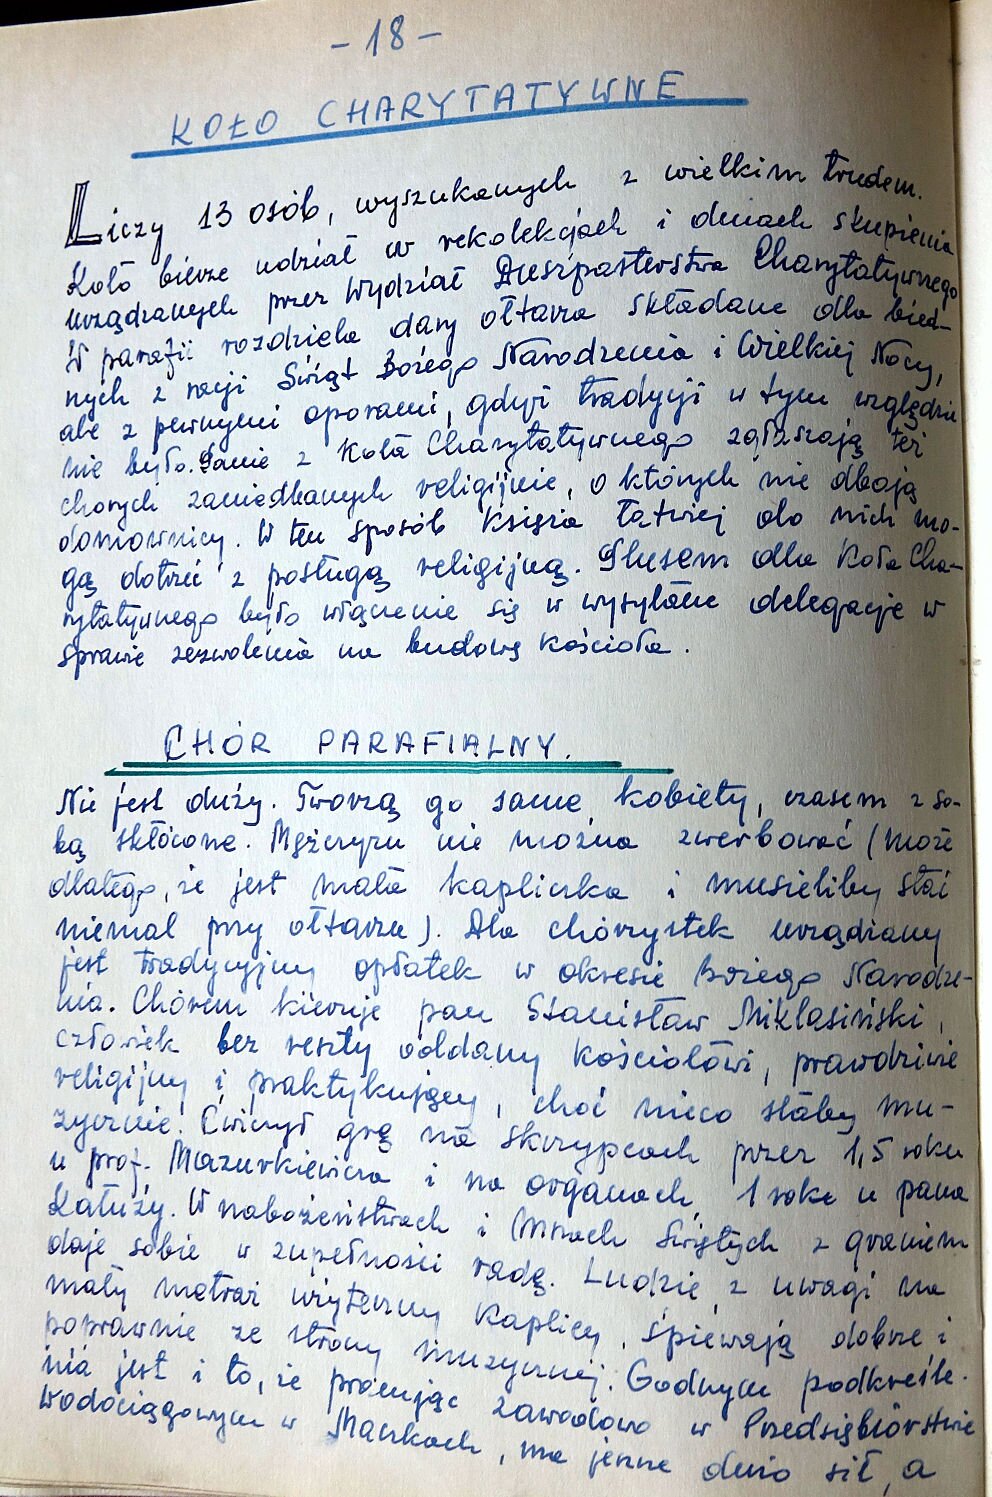 - 18 -
KOŁO CHARYTATYWNE
Liczy 13 osób, wyszukanych z wielkim trudem.
Koło bierze udział w rekolekcjach i dniach skupienia
urządzanych przez Wydział Duszpasterstwa Charytatywnego
W parafii rozdziela dary ołtarza składane dla bied-
nych z racji Świąt Bożego Narodzenia i Wielkiej Nocy,
ale z pewnymi oporami, gdyż tradycji w tym względzie
nie było. Panie z Koła Charytatywnego zgłaszają też
chorych zaniedbanych religijnie, o których nie dbają
domownicy. W ten sposób księża łatwiej do nich mo-
gą dotrzeć z posługą religijną. Plusem dla Koła Cha-
rytatywnego było włączenie się w wysyłane delegacje w
sprawie zezwolenia na budowę kościoła.
CHÓR PARAFIALNY.
Nie jest duży. Tworzą go same kobiety, czasem z so-
bą skłócone. Mężczyzn nie można zwerbować (może
dlatego, że jest mała kapliczka i musieliby stać
niemal przy ołtarzu). Dla chórzystek urządzany
jest tradycyjny opłatek w okresie Bożego Narodze-
nia. Chórem kieruje pan Stanisław Miklasiński,
człowiek bez reszty oddany Kościołowi, prawdziwie
religijny i praktykujący, choć nieco słaby mu-
zycznie. Ćwiczył grę na skrzypcach przez 1,5 roku
u prof. Mazurkiewicza i na organach, 1 rok u pana
Kałuży. W nabożeństwach i Mszach Świętych z graniem
daje sobie w zupełności radę. Ludzie, z uwagi na
mały metraż użyteczny Kaplicy, śpiewają dobrze i
poprawnie ze strony muzycznej. Godnym podkreśle-
nia jest i to, że pracując zawodowo w Przedsiębiorstwie
Wodociągowym w Maczkach, ma jeszcze dużo sił, a